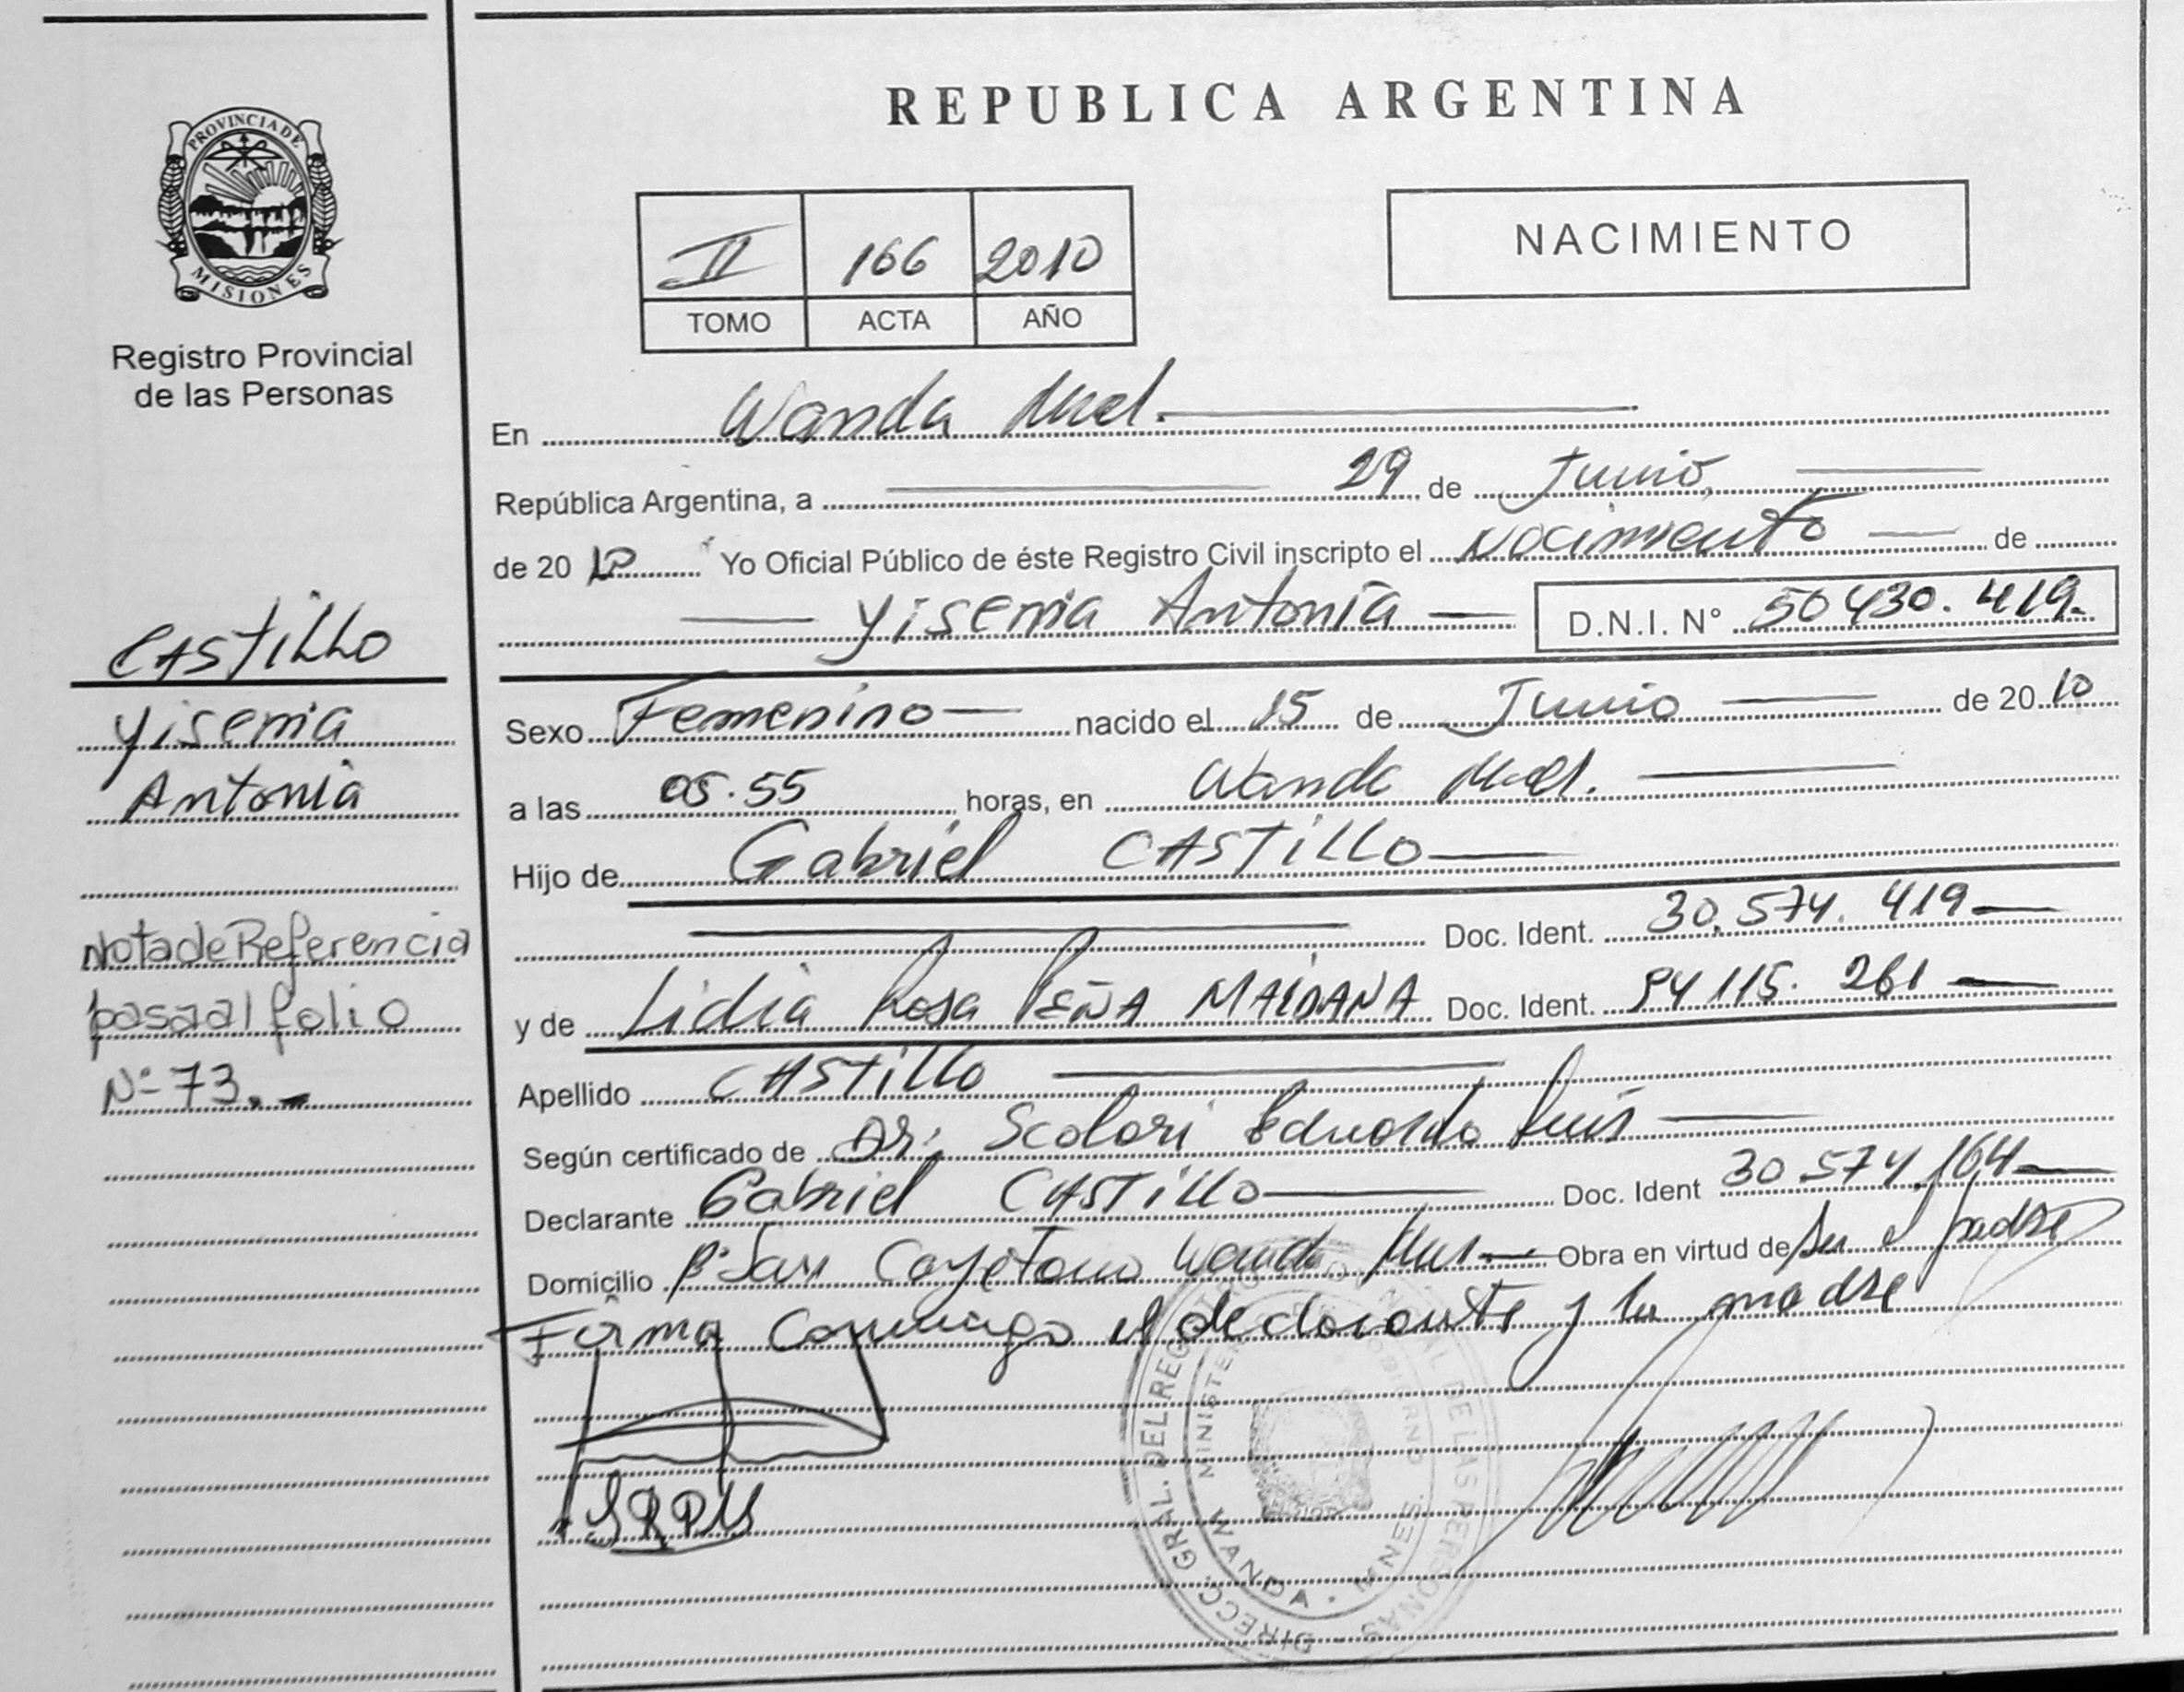 PROVINCIA DE
MISIONES
Registro Provincial
de las Personas
CASTILLO
Yisenia
Antonia
Nota de Referencia
pasa al folio
Nº 73.-
REPUBLICA ARGENTINA
II 166 2010
TOMO ACTA AÑO
NACIMIENTO
En Wanda
República Argentina, a 29 de Junio,
de 2010 Yo Oficial Público de éste Registro Civil inscripto el Nacimiento de
Yisenia Antonia D.N.I. Nº 50430.419.
Sexo Femenino nacido el 15 de Junio de 2010
a las 05.55 horas, en Wanda
Hijo de Gabriel CASTILLO
Doc. Ident. 30.574.419
y de Lidia Rosa PEÑA MAIDANA Doc. Ident. 94115.261
Apellido CASTILLO
Según certificado de Dr. Scolari Eduardo Luis
Declarante Gabriel CASTILLO Doc. Ident 30.574.164
Domicilio Bº San Cayetano Wanda Mnes. Obra en virtud de ser el padre
Firma Conmigo el declarante y la madre
DIRECC. GRAL. DEL REGISTRO PROVINCIAL DE LAS PERSONAS
MINISTERIO DE GOBIERNO
WANDA · MNES.